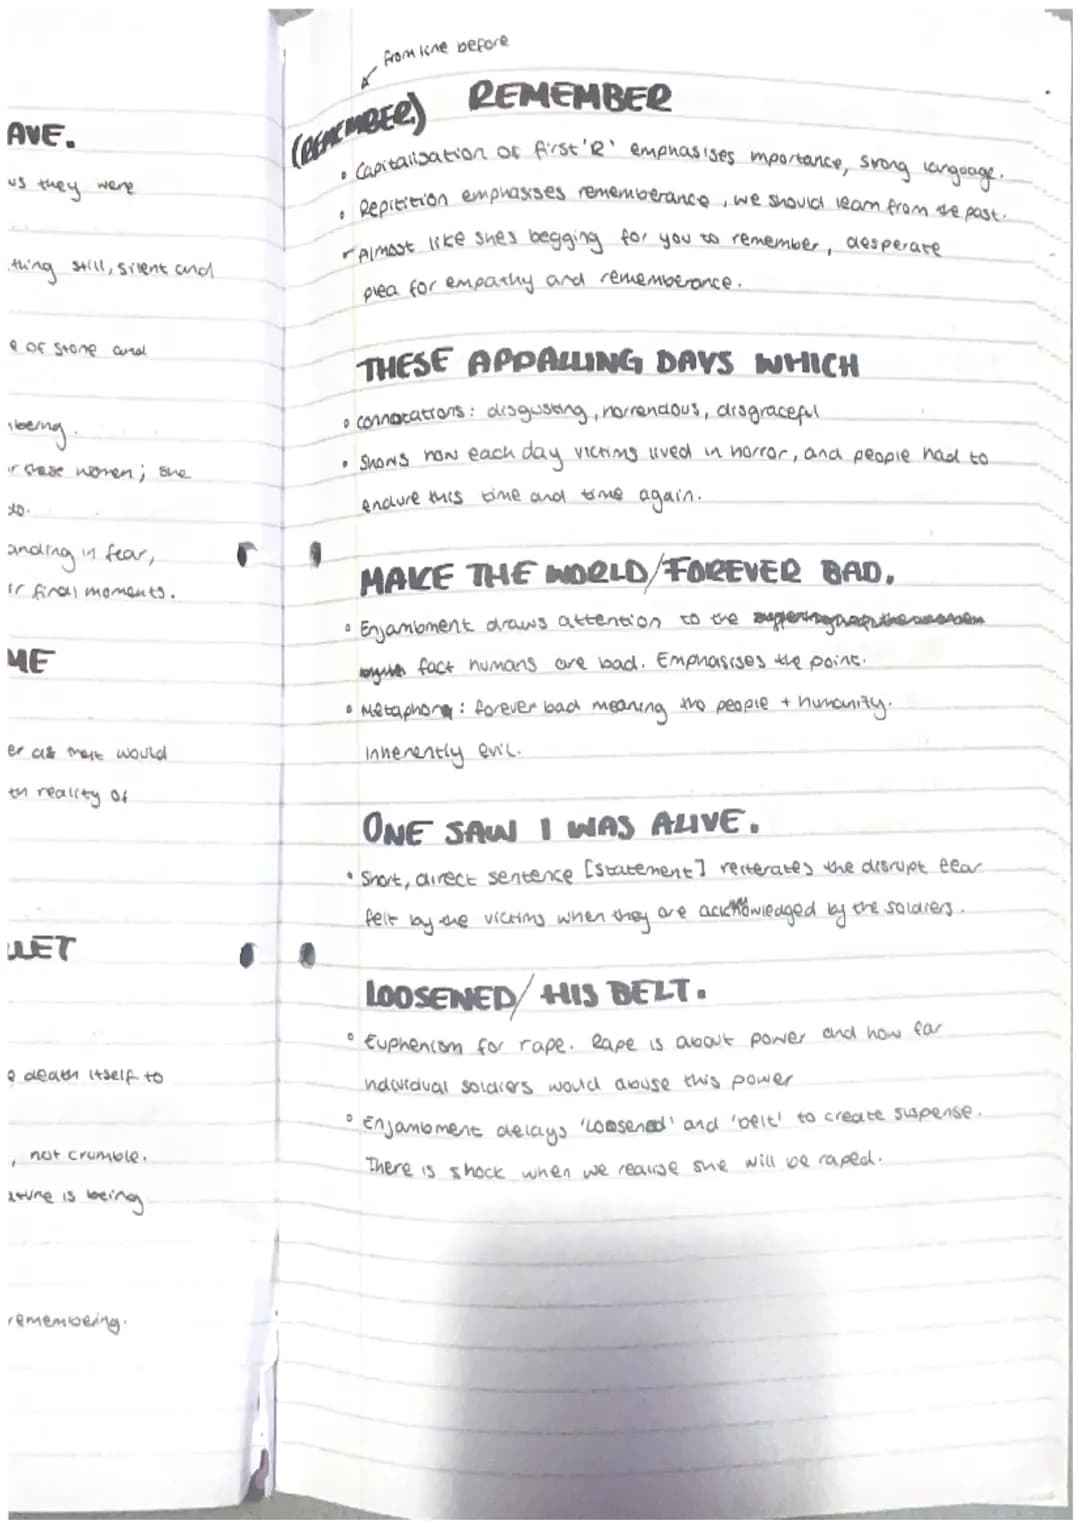 AVE.
us they were
thing still, silent and
e of stone and
being.
these women; she
do.
anding in fear,
ir final moments.
ME
er as that would
th reality of
LLET
e death itself to
, not crumble.
ature is being
remembeing.
from line before
(REMEMBER) REMEMBER
• Capitalisation of first 'R' emphasises mportance, srong language.
• Repitition emphasises rememberance, we should learn from the past.
- Almost like shes begging for you to remember, desperate
plea for empathy and rememberance.
THESE APPALLING DAYS WHICH
• connotations: disgusting, horrendous, disgraceful
• Shows how each day victims lived in horror, and people had to
endure this time and time again.
MAKE THE WORLD/FOREVER BAD.
• Enjambment draws attention to the
fact humans are bad. Emphasises the point.
• Metaphor: forever bad meaning the people + humanity.
inherently evil.
ONE SAW I WAS ALIVE.
• Short, direct sentence [statement] reiterates the disrupt fear
felt by the victims when they are acknowledged by the soldiers.
LOOSENED/ HIS BELT.
• Euphenism for rape. Rape is about power and how far
ndividual soldiers would abuse this power
• Enjambment delays 'loosened' and 'belt' to create suspense.
There is shock when we realise she will be raped.